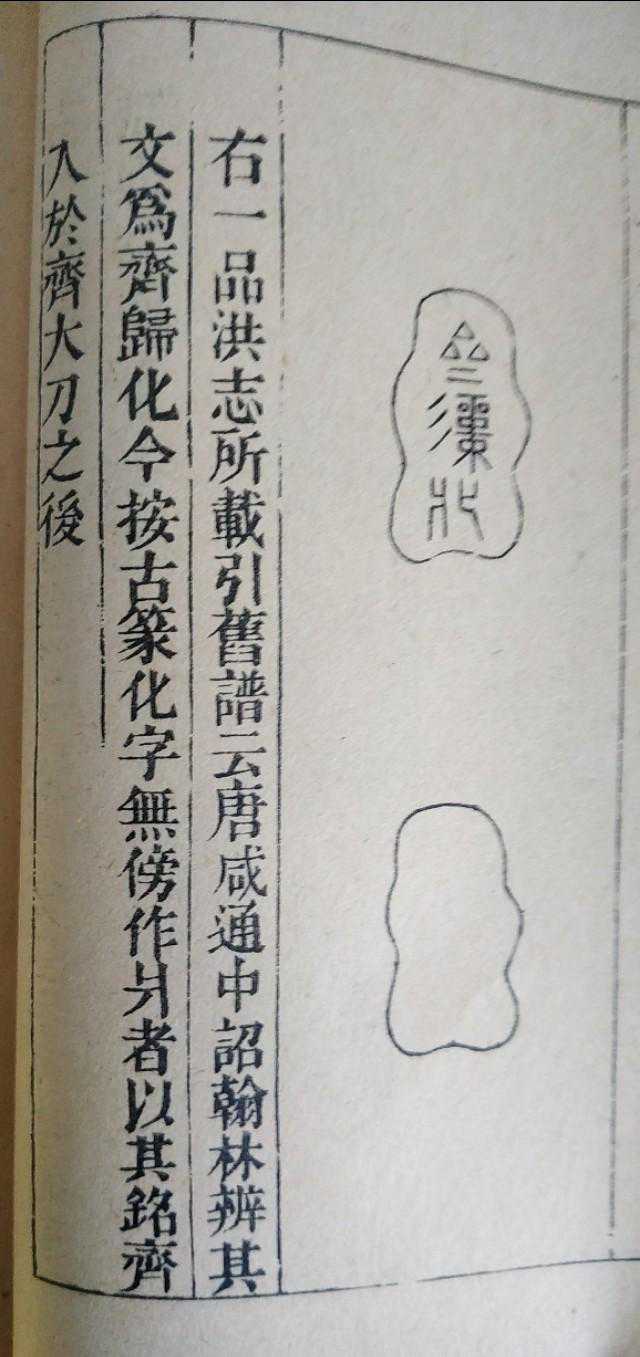 右一品洪志所載引舊譜云唐咸通中詔翰林辨其
文爲齊歸化今按古篆化字無傍作爿者以其銘齊
入於齊大刀之後